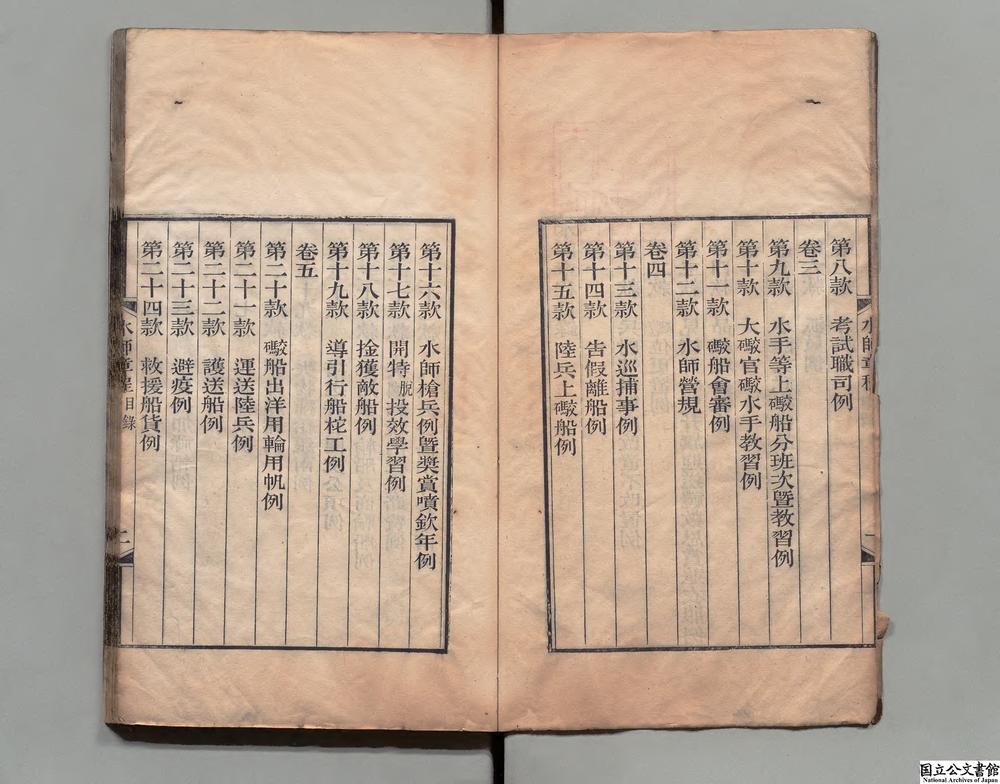 第八款 考試職司例
卷三
第九款 水手等上礮船分班次暨教習例
第十款 大礮官礮水手教習例
第十一款 礮船會審例
第十二款 水師營規
卷四
第十三款 水巡捕事例
第十四款 告假離船例
第十五款 陸兵上礮船例
第十六款 水師槍兵例暨獎賞噴欽年例
第十七款 開特脫投效學習例
第十八款 捦獲敵船例
第十九款 導引行船柁工例
卷五
第二十款 礮船出洋用輪用帆例
第二十一款 運送陸兵例
第二十二款 護送船例
第二十三款 避疫例
第二十四款 救援船貨例
水師章程 目錄 二
国立公文書館
National Archives of Japan